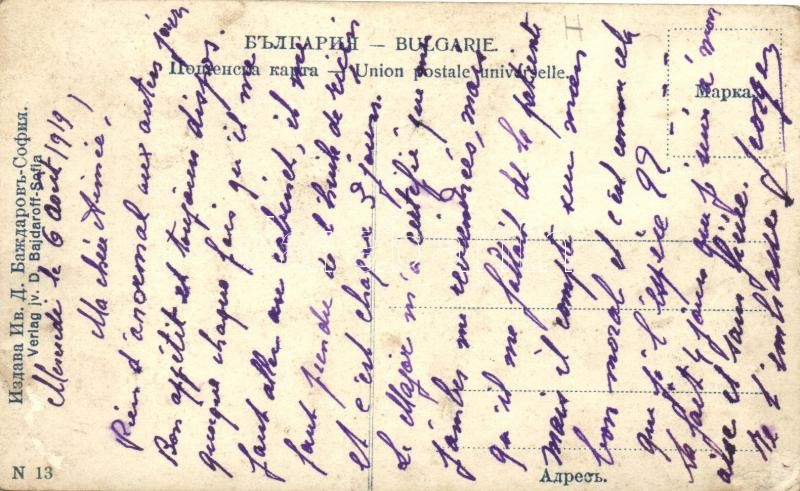 БЪЛГАРИЯ — BULGARIE.
Пощенска карта — Union postale universelle.
Марка.
Издава Ив. Д. Баждаровъ-София.
Verlag jv. D. Bajdaroff-Sofia
N 13
Адресъ.
le 6 Aout 1919
Ma chère Aimée,
Rien d'anormal aux autres jours
Bon appétit et toujours dispos.
quoique chaque fois qu'il me
faut aller au cabinet, il me
faut prendre de l'huile de ricin
et c'est chaque 3 jours.
Le Major m'a certifié que mes
jambes me reviendrés, mais
qu'il me fallait de la patience
mais il compte sur mon
bon moral et c'est comme cela
que je l'espère ??
ça fait 4 jours que je suis à mon
aise et sans fièvre.
Je t'embrasse Georges